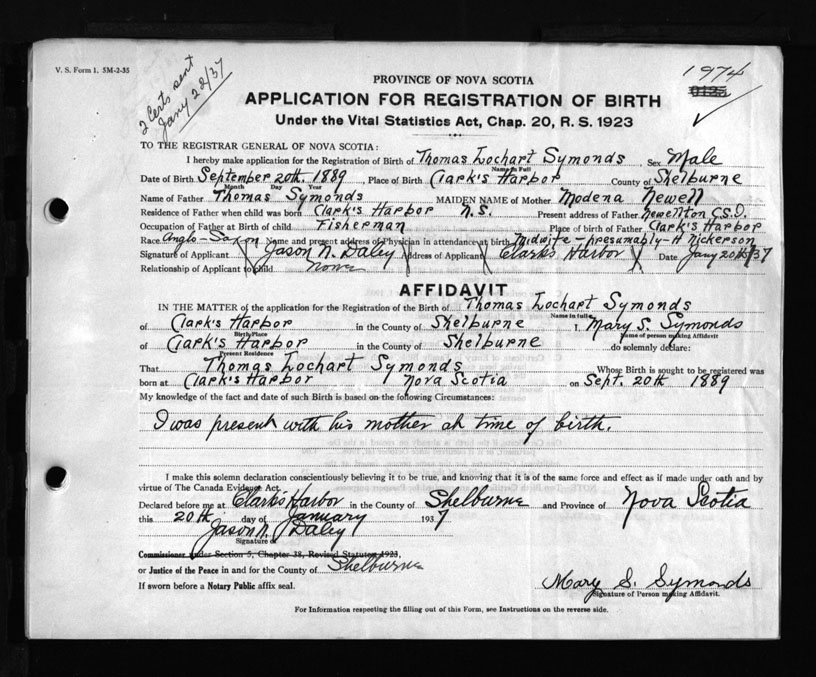 V. S. Form 1. 5M-2-35
2 Certs sent
Jany 22/37
1974
0125
PROVINCE OF NOVA SCOTIA
APPLICATION FOR REGISTRATION OF BIRTH
Under the Vital Statistics Act, Chap. 20, R. S. 1923
TO THE REGISTRAR GENERAL OF NOVA SCOTIA:
I hereby make application for the Registration of Birth of Thomas Lochart Symonds Sex Male
Name in Full
Date of Birth September 20th. 1889, Place of Birth Clark's Harbor County of Shelburne
Month Day Year
Name of Father Thomas Symonds MAIDEN NAME of Mother Modena Newell
Residence of Father when child was born Clark's Harbor N.S. Present address of Father Newellton C.S.I.
Occupation of Father at Birth of child Fisherman Place of birth of Father Clark's Harbor
Race Anglo-Saxon Name and present address of Physician in attendance at birth Midwife - presumably - H Nickerson
Signature of Applicant Jason N. Daley Address of Applicant Clark's Harbor Date Jany 20th/37
Relationship of Applicant to child None
AFFIDAVIT
IN THE MATTER of the application for the Registration of the Birth of Thomas Lochart Symonds
Name in full
of Clark's Harbor in the County of Shelburne I, Mary S. Symonds
Birth Place Name of person making Affidavit
of Clark's Harbor in the County of Shelburne do solemnly declare:
Present Residence
That Thomas Lochart Symonds Whose Birth is sought to be registered was
born at Clark's Harbor Nova Scotia on Sept. 20th 1889
My knowledge of the fact and date of such Birth is based on the following Circumstances:
I was present with his mother at time of birth.
I make this solemn declaration conscientiously believing it to be true, and knowing that it is of the same force and effect as if made under oath and by
virtue of The Canada Evidence Act.
Declared before me at Clark's Harbor in the County of Shelburne and Province of Nova Scotia
this 20th day of January 1937
Jason N. Daley
Signature of
Commissioner under Section 5, Chapter 38, Revised Statutes 1923,
or Justice of the Peace in and for the County of Shelburne
If sworn before a Notary Public affix seal.
Mary S. Symonds
Signature of Person making Affidavit.
For Information respecting the filling out of this Form, see Instructions on the reverse side.